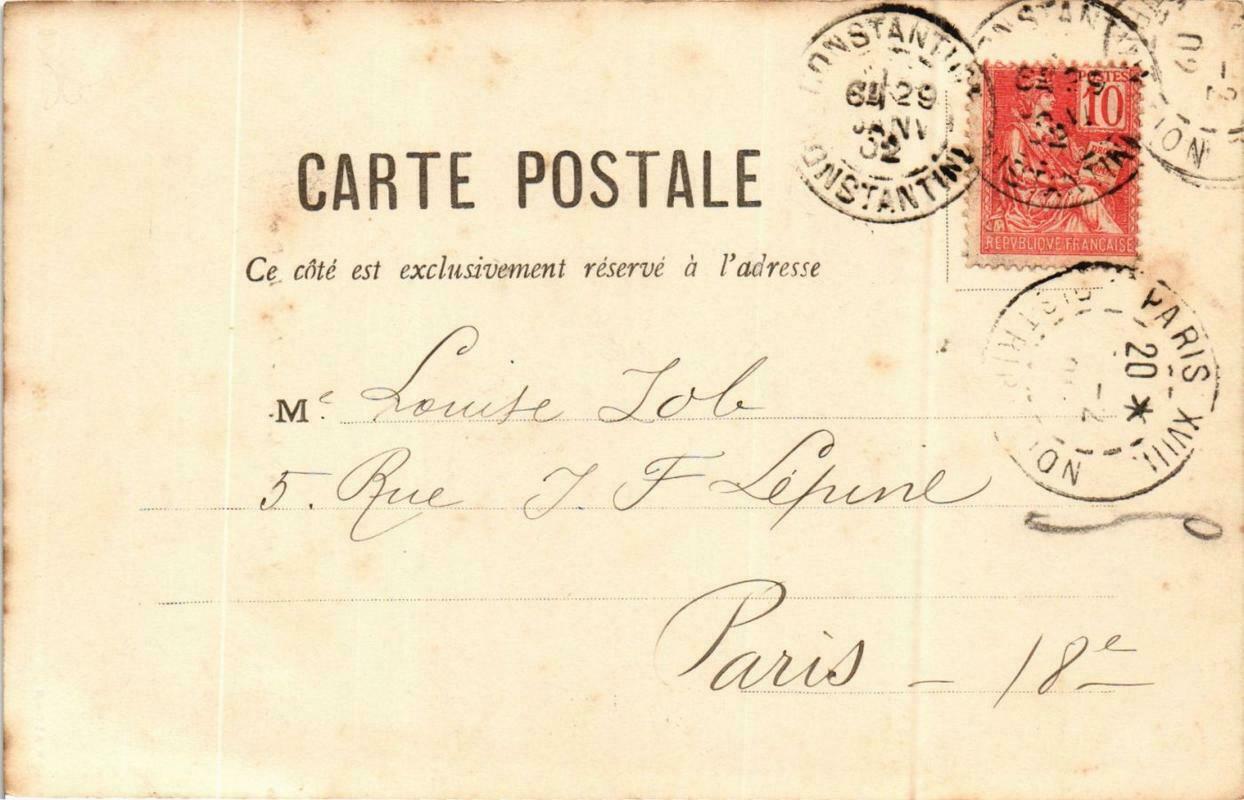 CONSTANTINE
6E 29
JANV
02
CONSTANTINE
POSTES
10
REPVBLIQVE FRANÇAISE
02
CARTE POSTALE
Ce côté est exclusivement réservé à l'adresse
PARIS XVIII
20 *
-2
DISTRIBUTION
Me. Louise Job
5. Rue J F Lépine
Paris - 18e